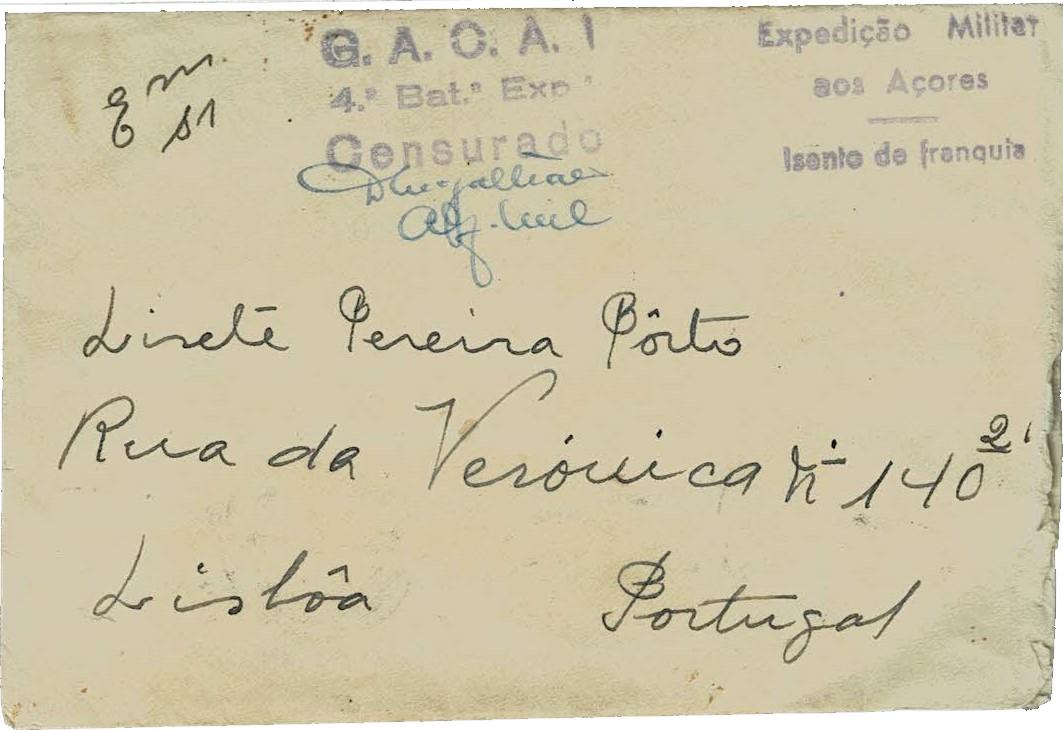 G. A. C. A. 1
4.ª Bat.ª Exp.
Censurado
Alf. Mil
Expedição Militar
aos Açores
Isento de franquia
Lisete Pereira Pôrto
Rua da Verónica nº 140 2º
Lisbôa Portugal